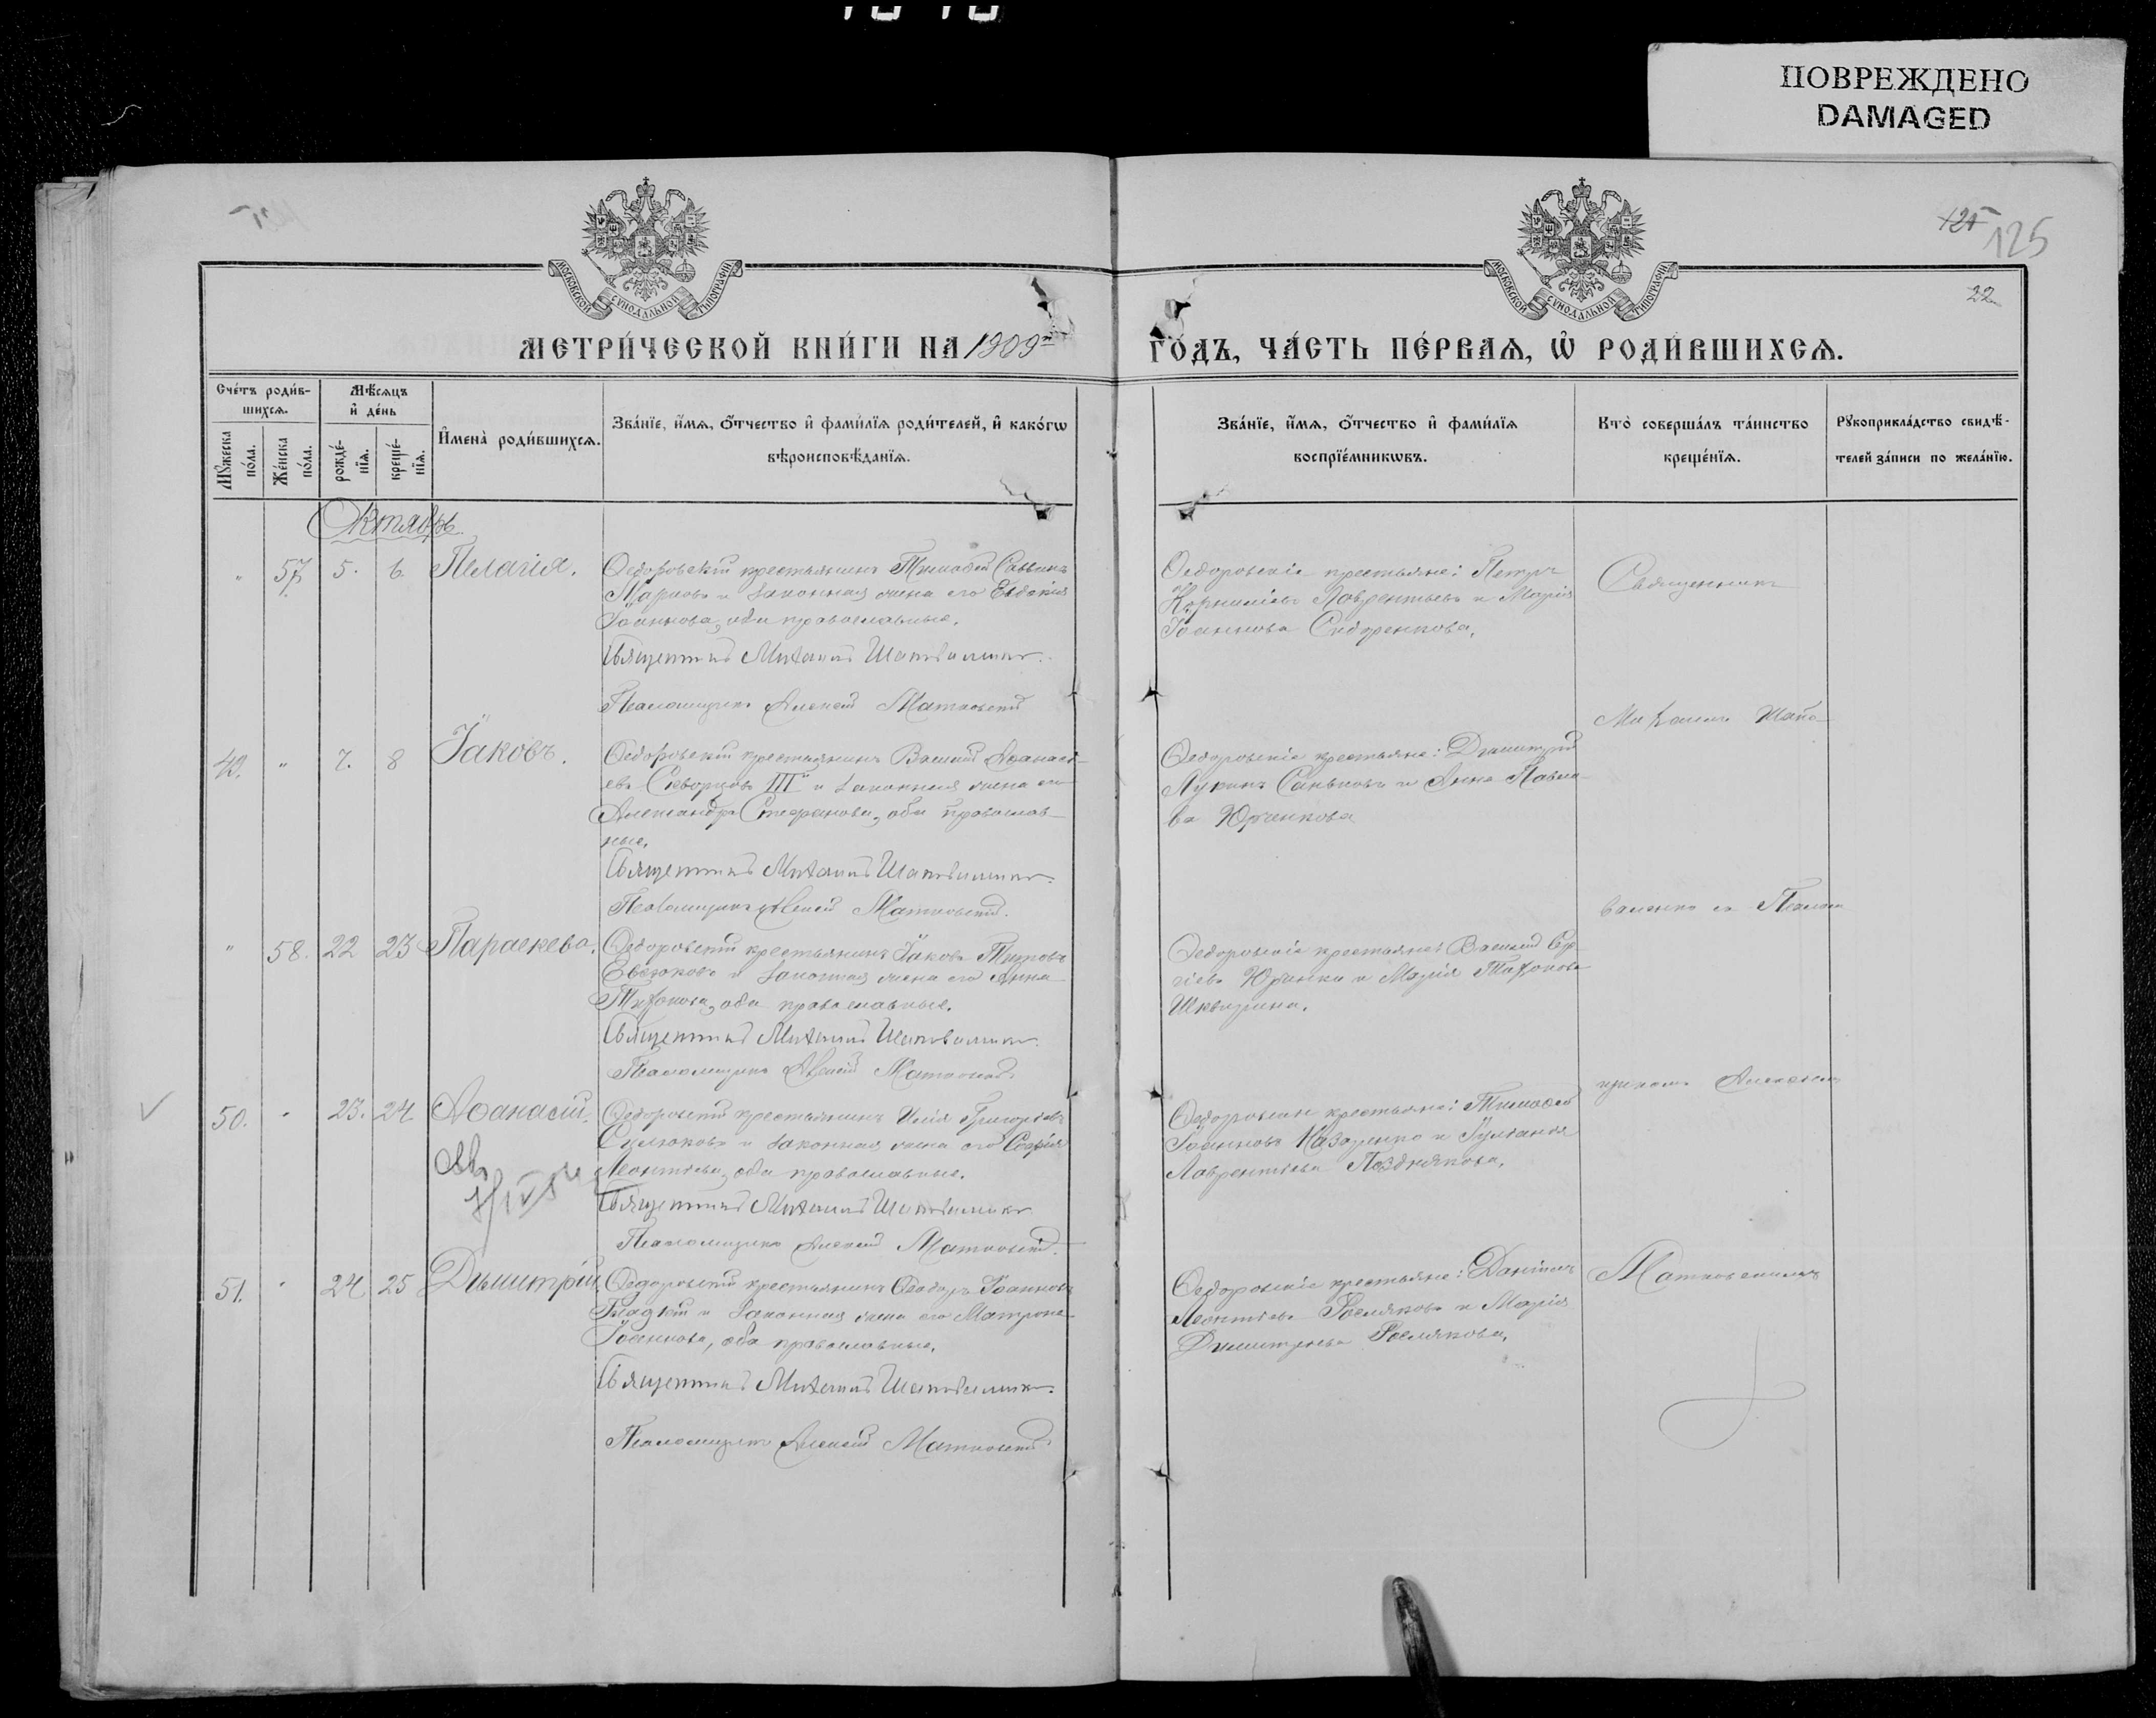 ПОВРЕЖДЕНО
DAMAGED
125
125
22
МОСКОВСКОЙ СУНОДАЛЬНОЙ ТИПОГРАФІИ
МОСКОВСКОЙ СУНОДАЛЬНОЙ ТИПОГРАФІИ
МЕТРИ́ЧЕСКОЙ КНИ́ГИ НА 1909й
ГО́ДЪ, ЧА́СТЬ ПЕ́РВАѦ, Ѡ҆ РОДИ́ВШИХСѦ.
Сче́тъ роди́в-
шихсѧ.
Мѣ́сѧцъ
и҆ де́нь
Мꙋ́жеска
по́ла.
Же́нска
по́ла.
рожде́-
нїѧ.
креще́-
нїѧ.
И҆мена̀ роди́вшихсѧ.
Зва́нїе, и҆́мѧ, ѻ҆́тчество и҆ фами́лїѧ роди́телей, и҆ како́гѡ
вѣроисповѣ́данїѧ.
Зва́нїе, и҆́мѧ, ѻ҆́тчество и҆ фами́лїѧ
воспрїе́мникѡвъ.
Кто̀ соверша́лъ та́инство
креще́нїѧ.
Рꙋкоприкла́дство свидѣ́-
телей за́писи по жела́нїю.
Октябрь
" 57. 5. 6. Пелагія.
Ѳедоровскій крестьянинъ Тимоѳей Саввинъ
Марковъ и законная жена его Евдокія
Іоаннова, оба православные.
Священникъ Михаилъ Шаповаленко.
Псаломщикъ Алексій Матковскій
Ѳедоровскіе крестьяне: Петръ
Корниліевъ Лаврентьевъ и Марія
Іоаннова Сидоренкова.
Священникъ
Михаилъ Шапо-
49. " 7. 8 Іаковъ.
Ѳедоровскій крестьянинъ Василій Аѳанасі-
евъ Скворцовъ III й и законная жена его
Александра Стефанова, оба православ-
ные.
Священникъ Михаилъ Шаповаленко.
Псаломщикъ Алексій Матковскій.
Ѳедоровскіе крестьяне: Димитрій
Лукинъ Саньковъ и Анна Павло-
ва Юрченкова
валенко съ Псалом-
" 58. 22 23 Параскева.
Ѳедоровскій крестьянинъ Іаковъ Титовъ
Евсюковъ и законная жена его Анна
Тихонова, оба православные.
Священникъ Михаилъ Шаповаленко.
Псаломщикъ Алексій Матковскій
Ѳедоровскіе крестьяне: Василій Сер-
гіевъ Юрченко и Марія Тихонова
Шквирина.
щикомъ Алексѣемъ
50. " 23. 24 Аѳанасій.
Ѳедоровскій крестьянинъ Илія Григоріевъ
Сулюковъ и законная жена его Софія
Леонтіева, оба православные.
Священникъ Михаилъ Шаповаленко
Псаломщикъ Алексій Матковскій.
Ѳедоровскіе крестьяне: Тимоѳей
Іоанновъ Назаренко и Іуліанія
Лаврентіева Позднякова.
51. " 24 25 Димитрій.
Ѳедоровскій крестьянинъ Ѳеодоръ Іоанновъ
Гладкій и законная жена его Матрона
Іоаннова, оба православные.
Священникъ Михаилъ Шаповаленко.
Псаломщикъ Алексій Матковскій
Ѳедоровскіе крестьяне: Даніилъ
Леонтіевъ Росляковъ и Марія
Димитріева Рослякова.
Матковскимъ